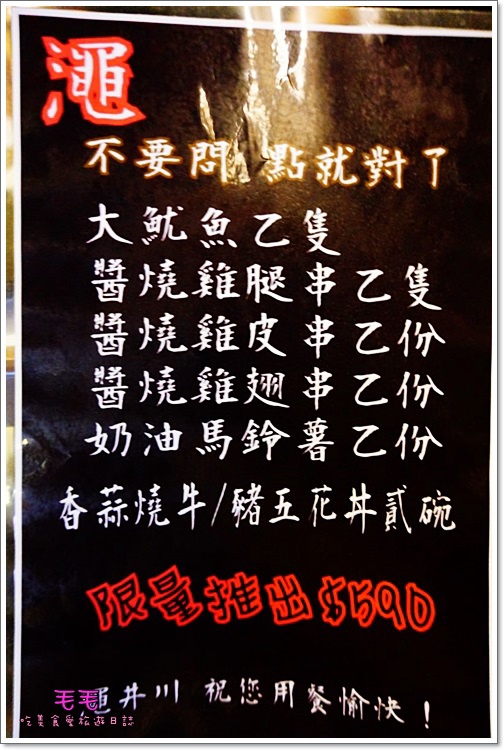 澠
不要問 點就對了
大魷魚乙隻
醬燒雞腿串乙隻
醬燒雞皮串乙份
醬燒雞翅串乙份
奶油馬鈴薯乙份
香蒜燒牛/豬五花丼貳碗
限量推出$590
澠井川 祝您用餐愉快!
毛毛
吃美食聖旅遊日誌